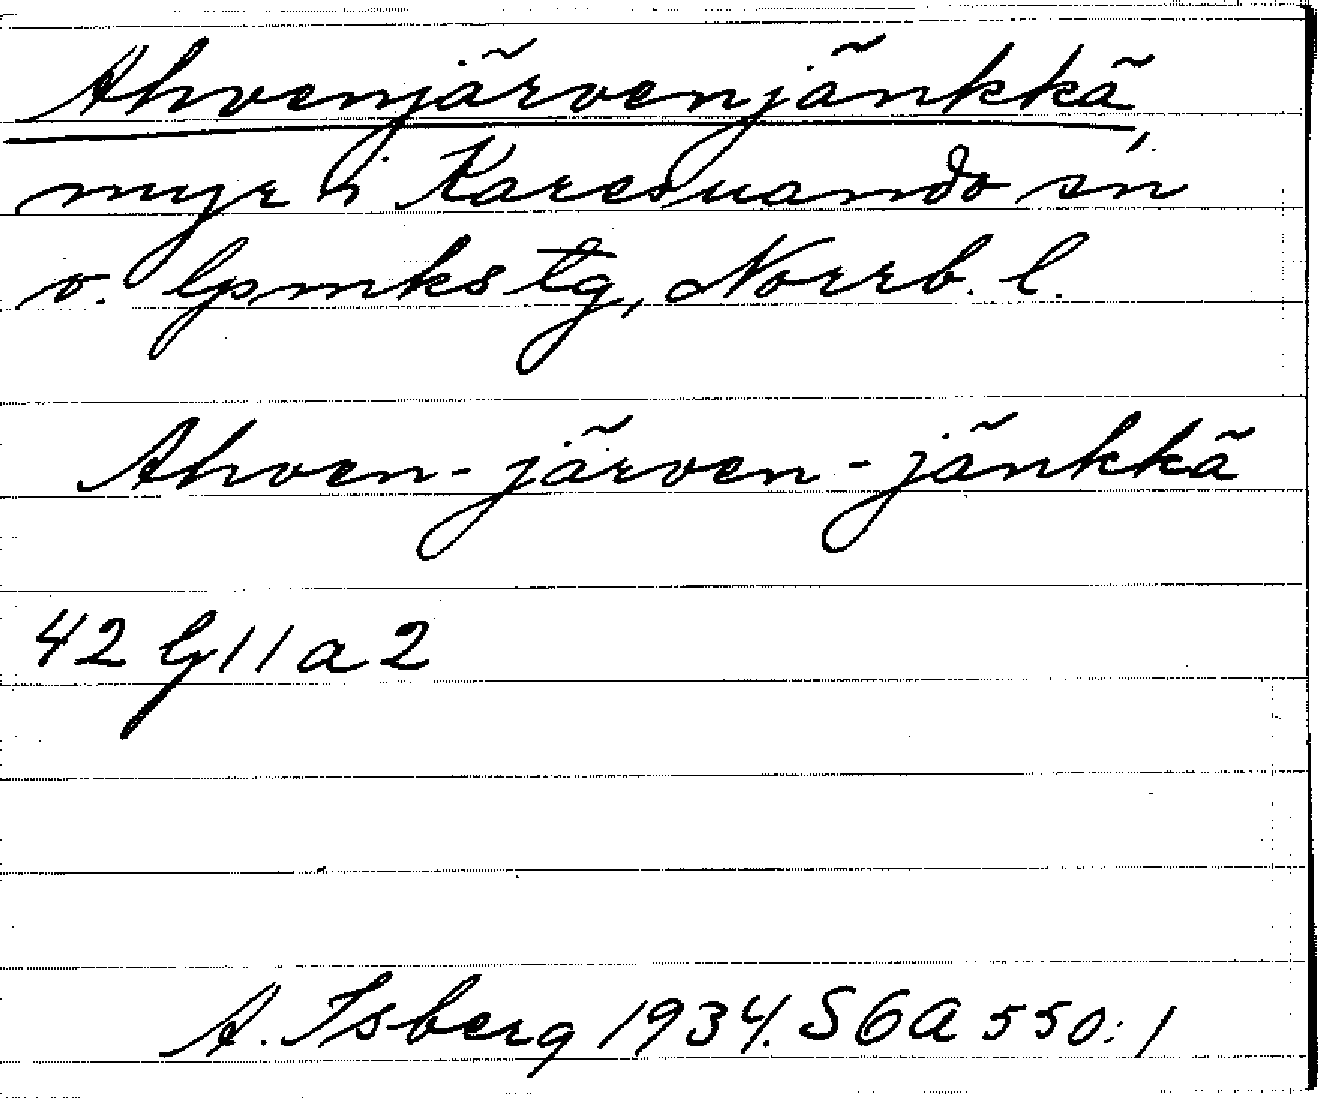 Ahvenjärvenjänkkä,
myr i Karesuando sn
o. lpmks tg, Norrb. l.
Ahven-järven-jänkkä
42 G 11 a 2
A. Isberg 1934. SGA 550:1